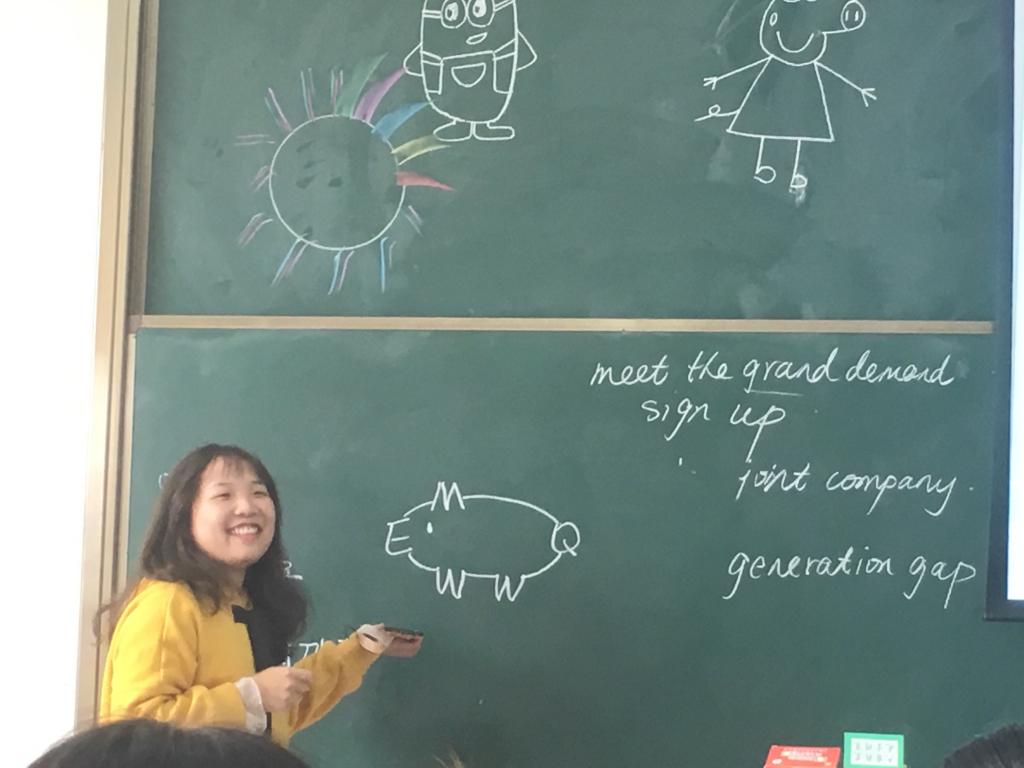 meet the grand demand
sign up
joint company.
generation gap